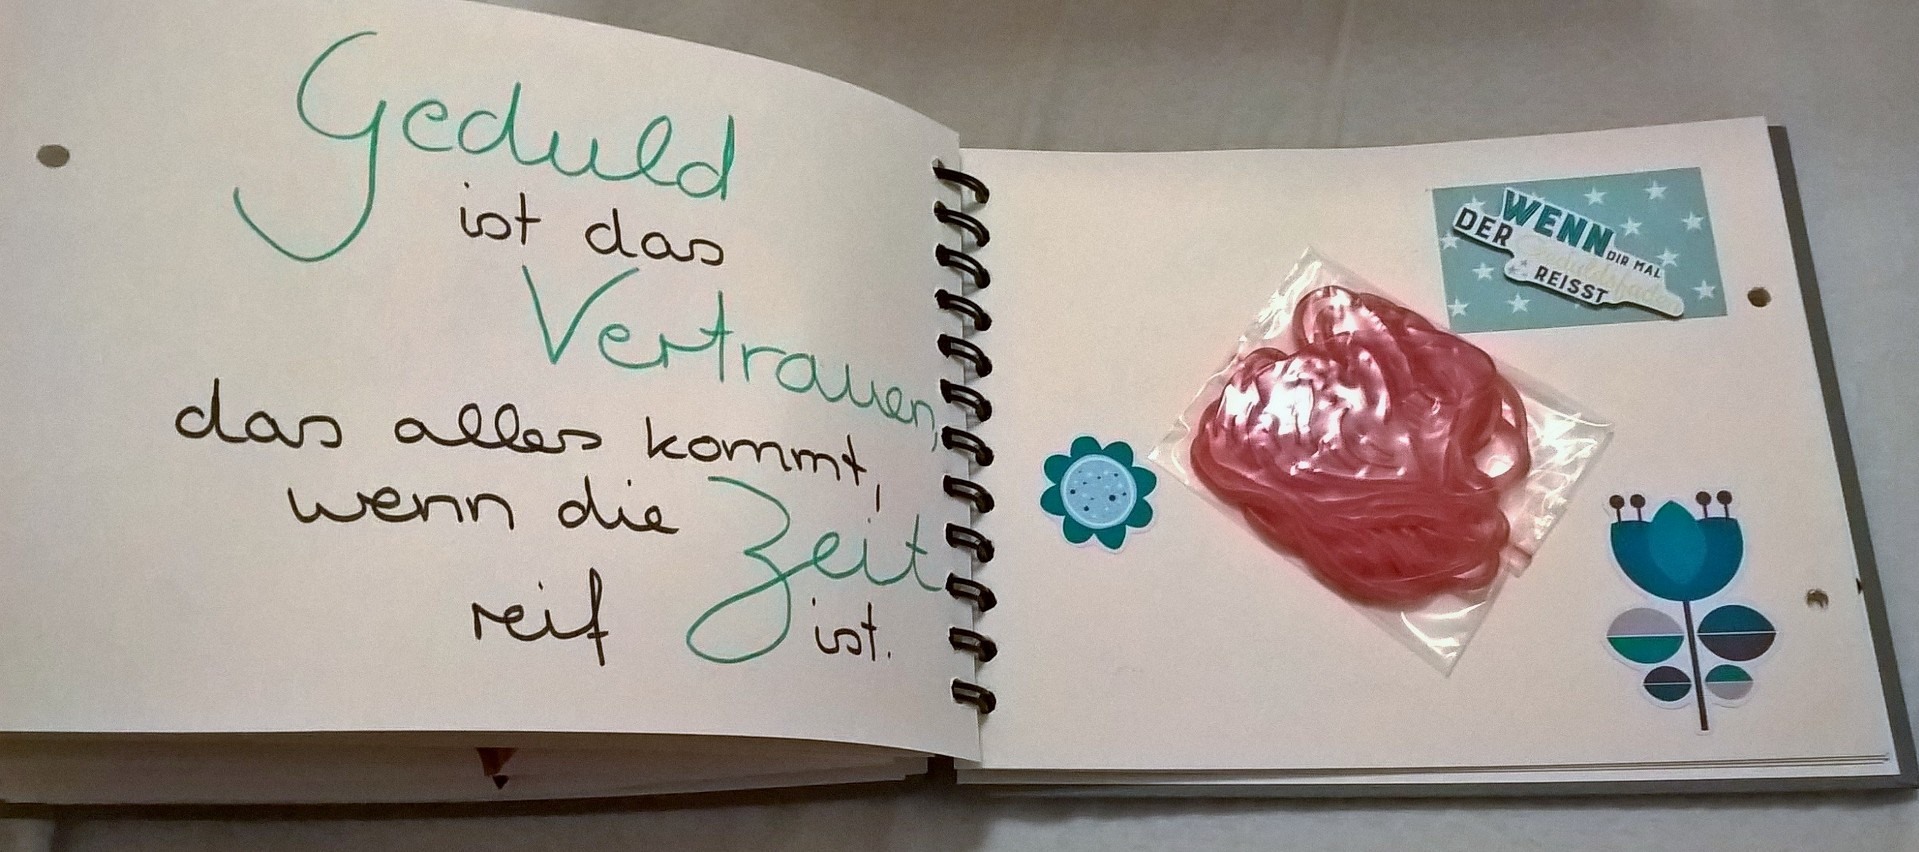 Geduld
ist das
Vertrauen,
das alles kommt,
wenn die Zeit
reif ist.
WENN DIR MAL
DER Geduldsfaden
REISST